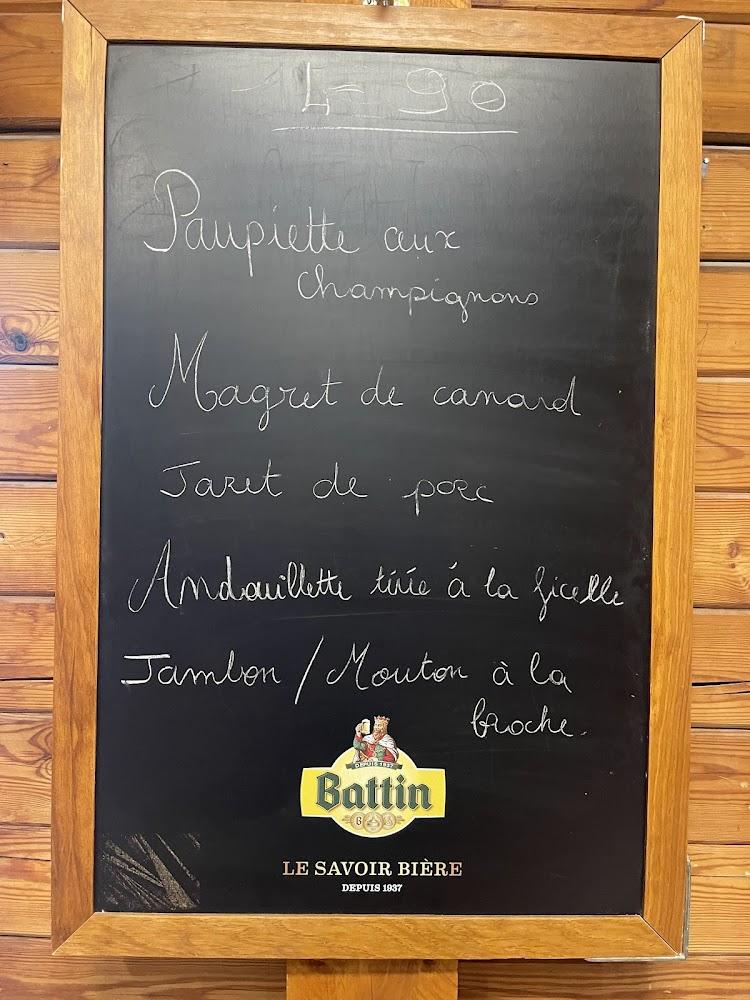 14=90
Paupiette aux
champignons
Magret de canard
Jaret de porc
Andouillette tirée à la ficelle
Jambon / Mouton à la
broche.
DEPUIS 1937
Battin
LE SAVOIR BIÈRE
DEPUIS 1937